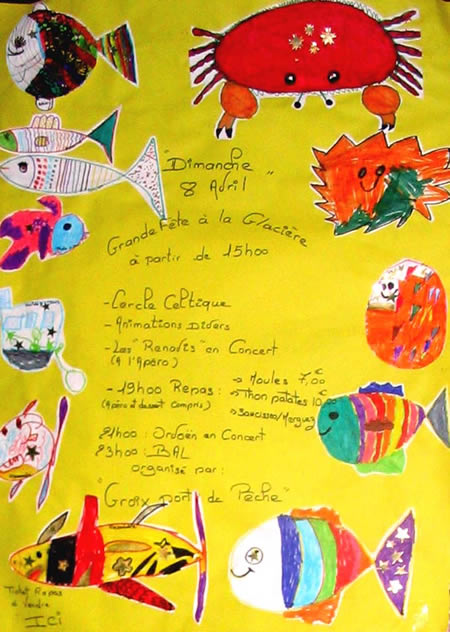 "Dimanche
8 Avril"
Grande Fête à la Glacière
à partir de 15h00
- Cercle Celtique
- Animations Divers
- Les "Renavis" en Concert
(A l'Apéro)
- 19h00 Repas : → Moules 7,00€
(Apéro et dessert compris) → Thon patates 10,00
→ Saucisse/Merguez
21h00 : en Concert
23h00 : BAL
organisé par :
"Groix port de Pêche"
Ticket Repas
à vendre
ICi